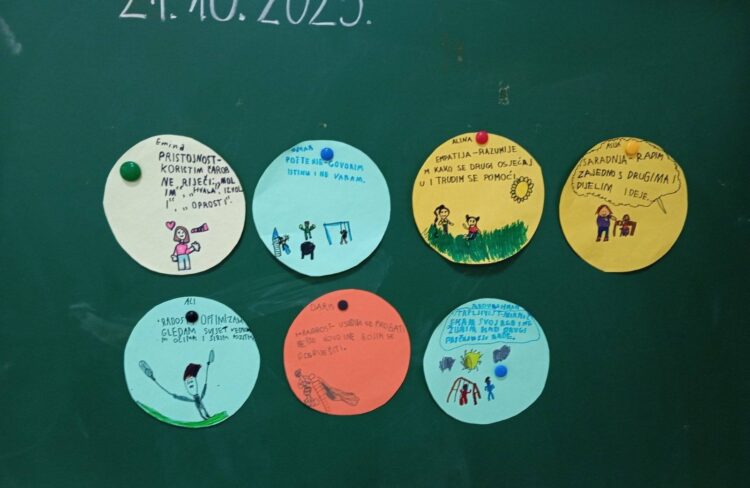 21.10.2025.
Emina
PRISTOJNOST-
KORISTIM ČAROB
NE RIJEČI: "MOL
IM", "HVALA", IZVOL
I", "OPROSTI"
OMAR
POŠTENJE-GOVORIM
ISTINU I NE VARAM.
ALINA
EMPATIJA-RAZUMIJE
M KAKO SE DRUGI OSJEĆAJ
U I TRUDIM SE POMOĆI.
ASJA
SARADNJA-RADIM
ZAJEDNO S DRUGIMA I
DIJELIM IDEJE.
ALI
RADOST OPTIMIZAM
GLEDAM SVIJET
OČIMA I ŠIRIM
DARIS
HRABROST- USUDIM SE PROBATI
NEŠTO NOVO I NE BOJIM SE
POGRIJEŠITI.
STRPLJIVOST-
ČEKAM SVOJ RED I NE
ŽURIM KAD DRUGI
RADE.